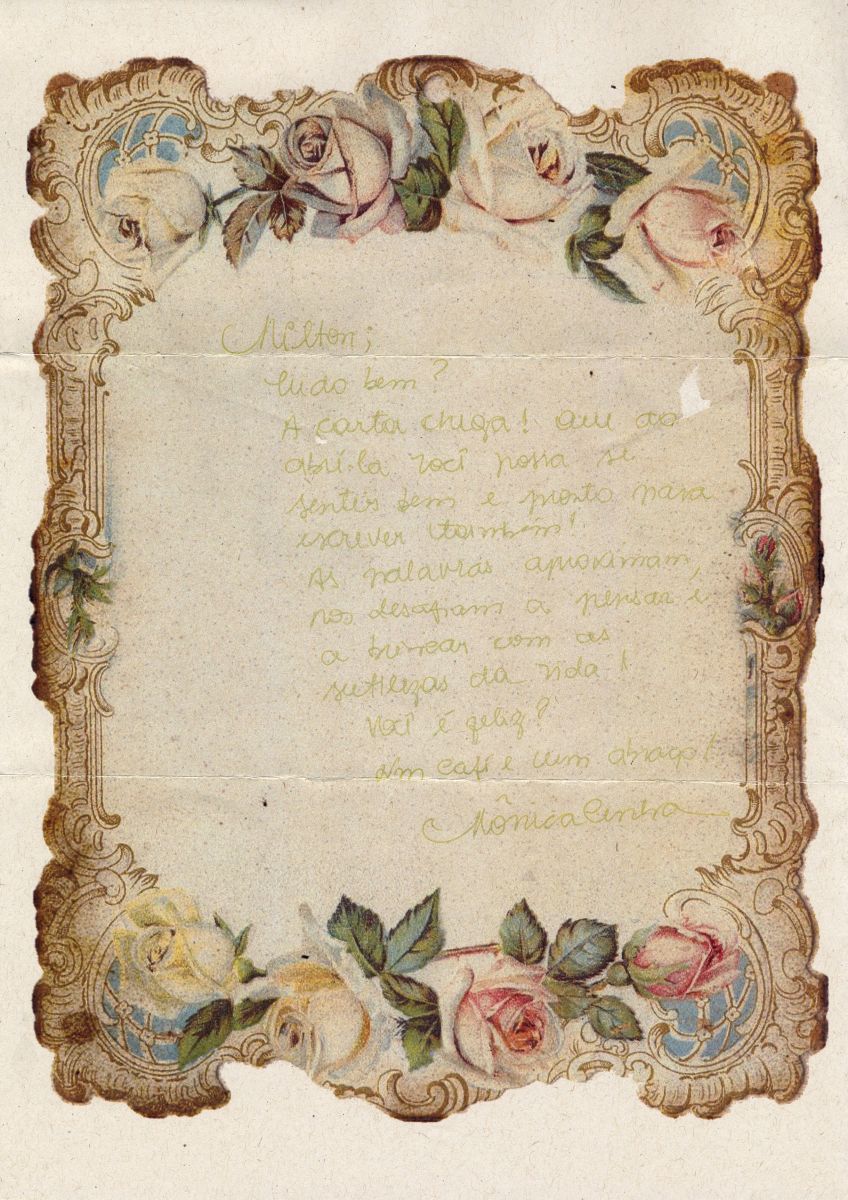 Milton;
Tudo bem?
A carta chega! Que ao
abrí-la você possa se
sentir bem e pronto para
escrever também!
As palavras aproximam,
nos desafiam a pensar e
a brincar com as
sutilezas da vida!
Você é feliz?
Um café e um abraço!
Mônica Cunha